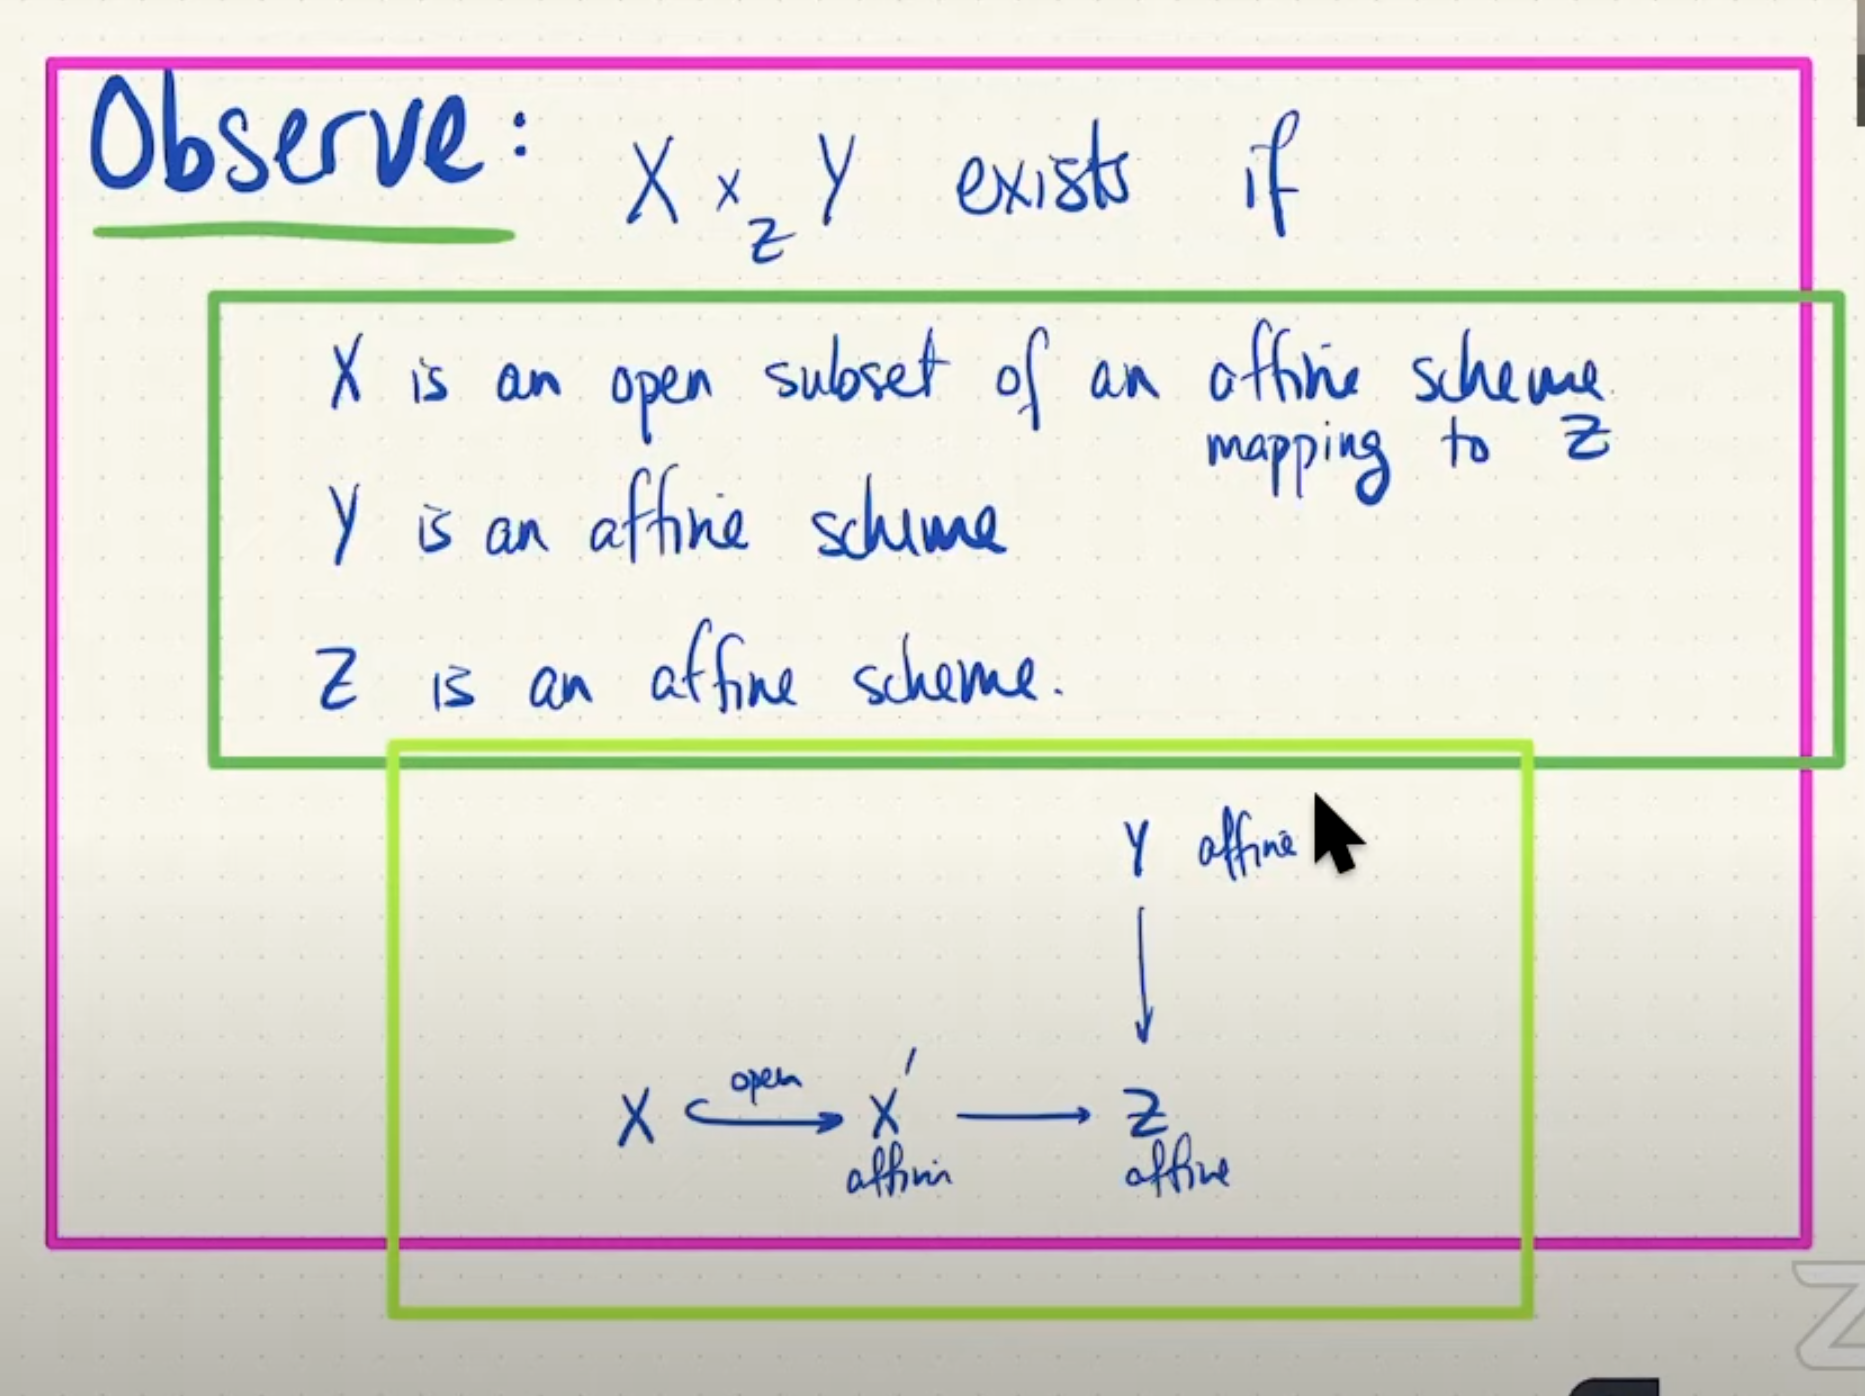 Observe: X ×_Z Y exists if
X is an open subset of an affine scheme
mapping to Z
Y is an affine scheme
Z is an affine scheme.
Y affine
open
X ↪ X' → Z
affine affine
Z